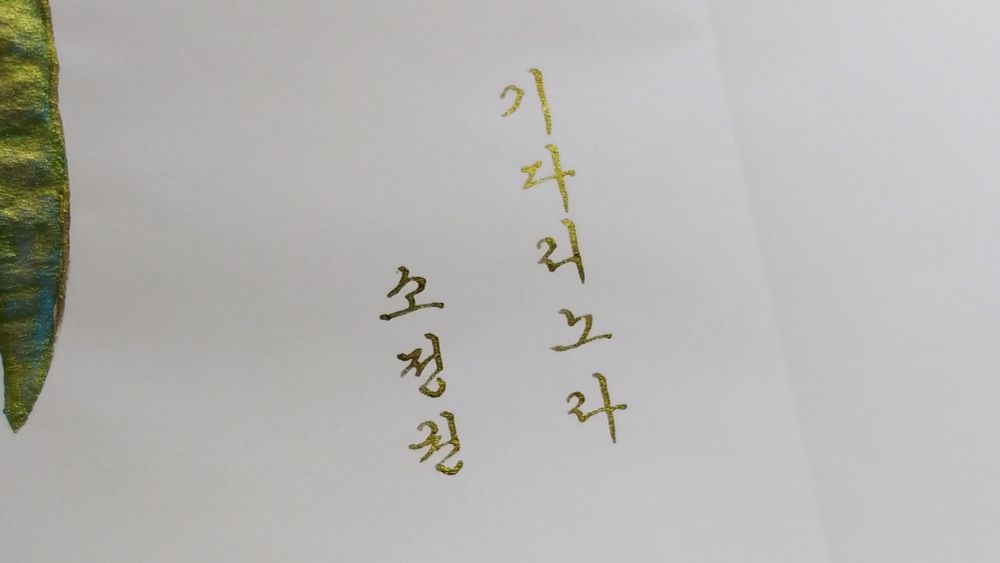 기다리노라
소정권